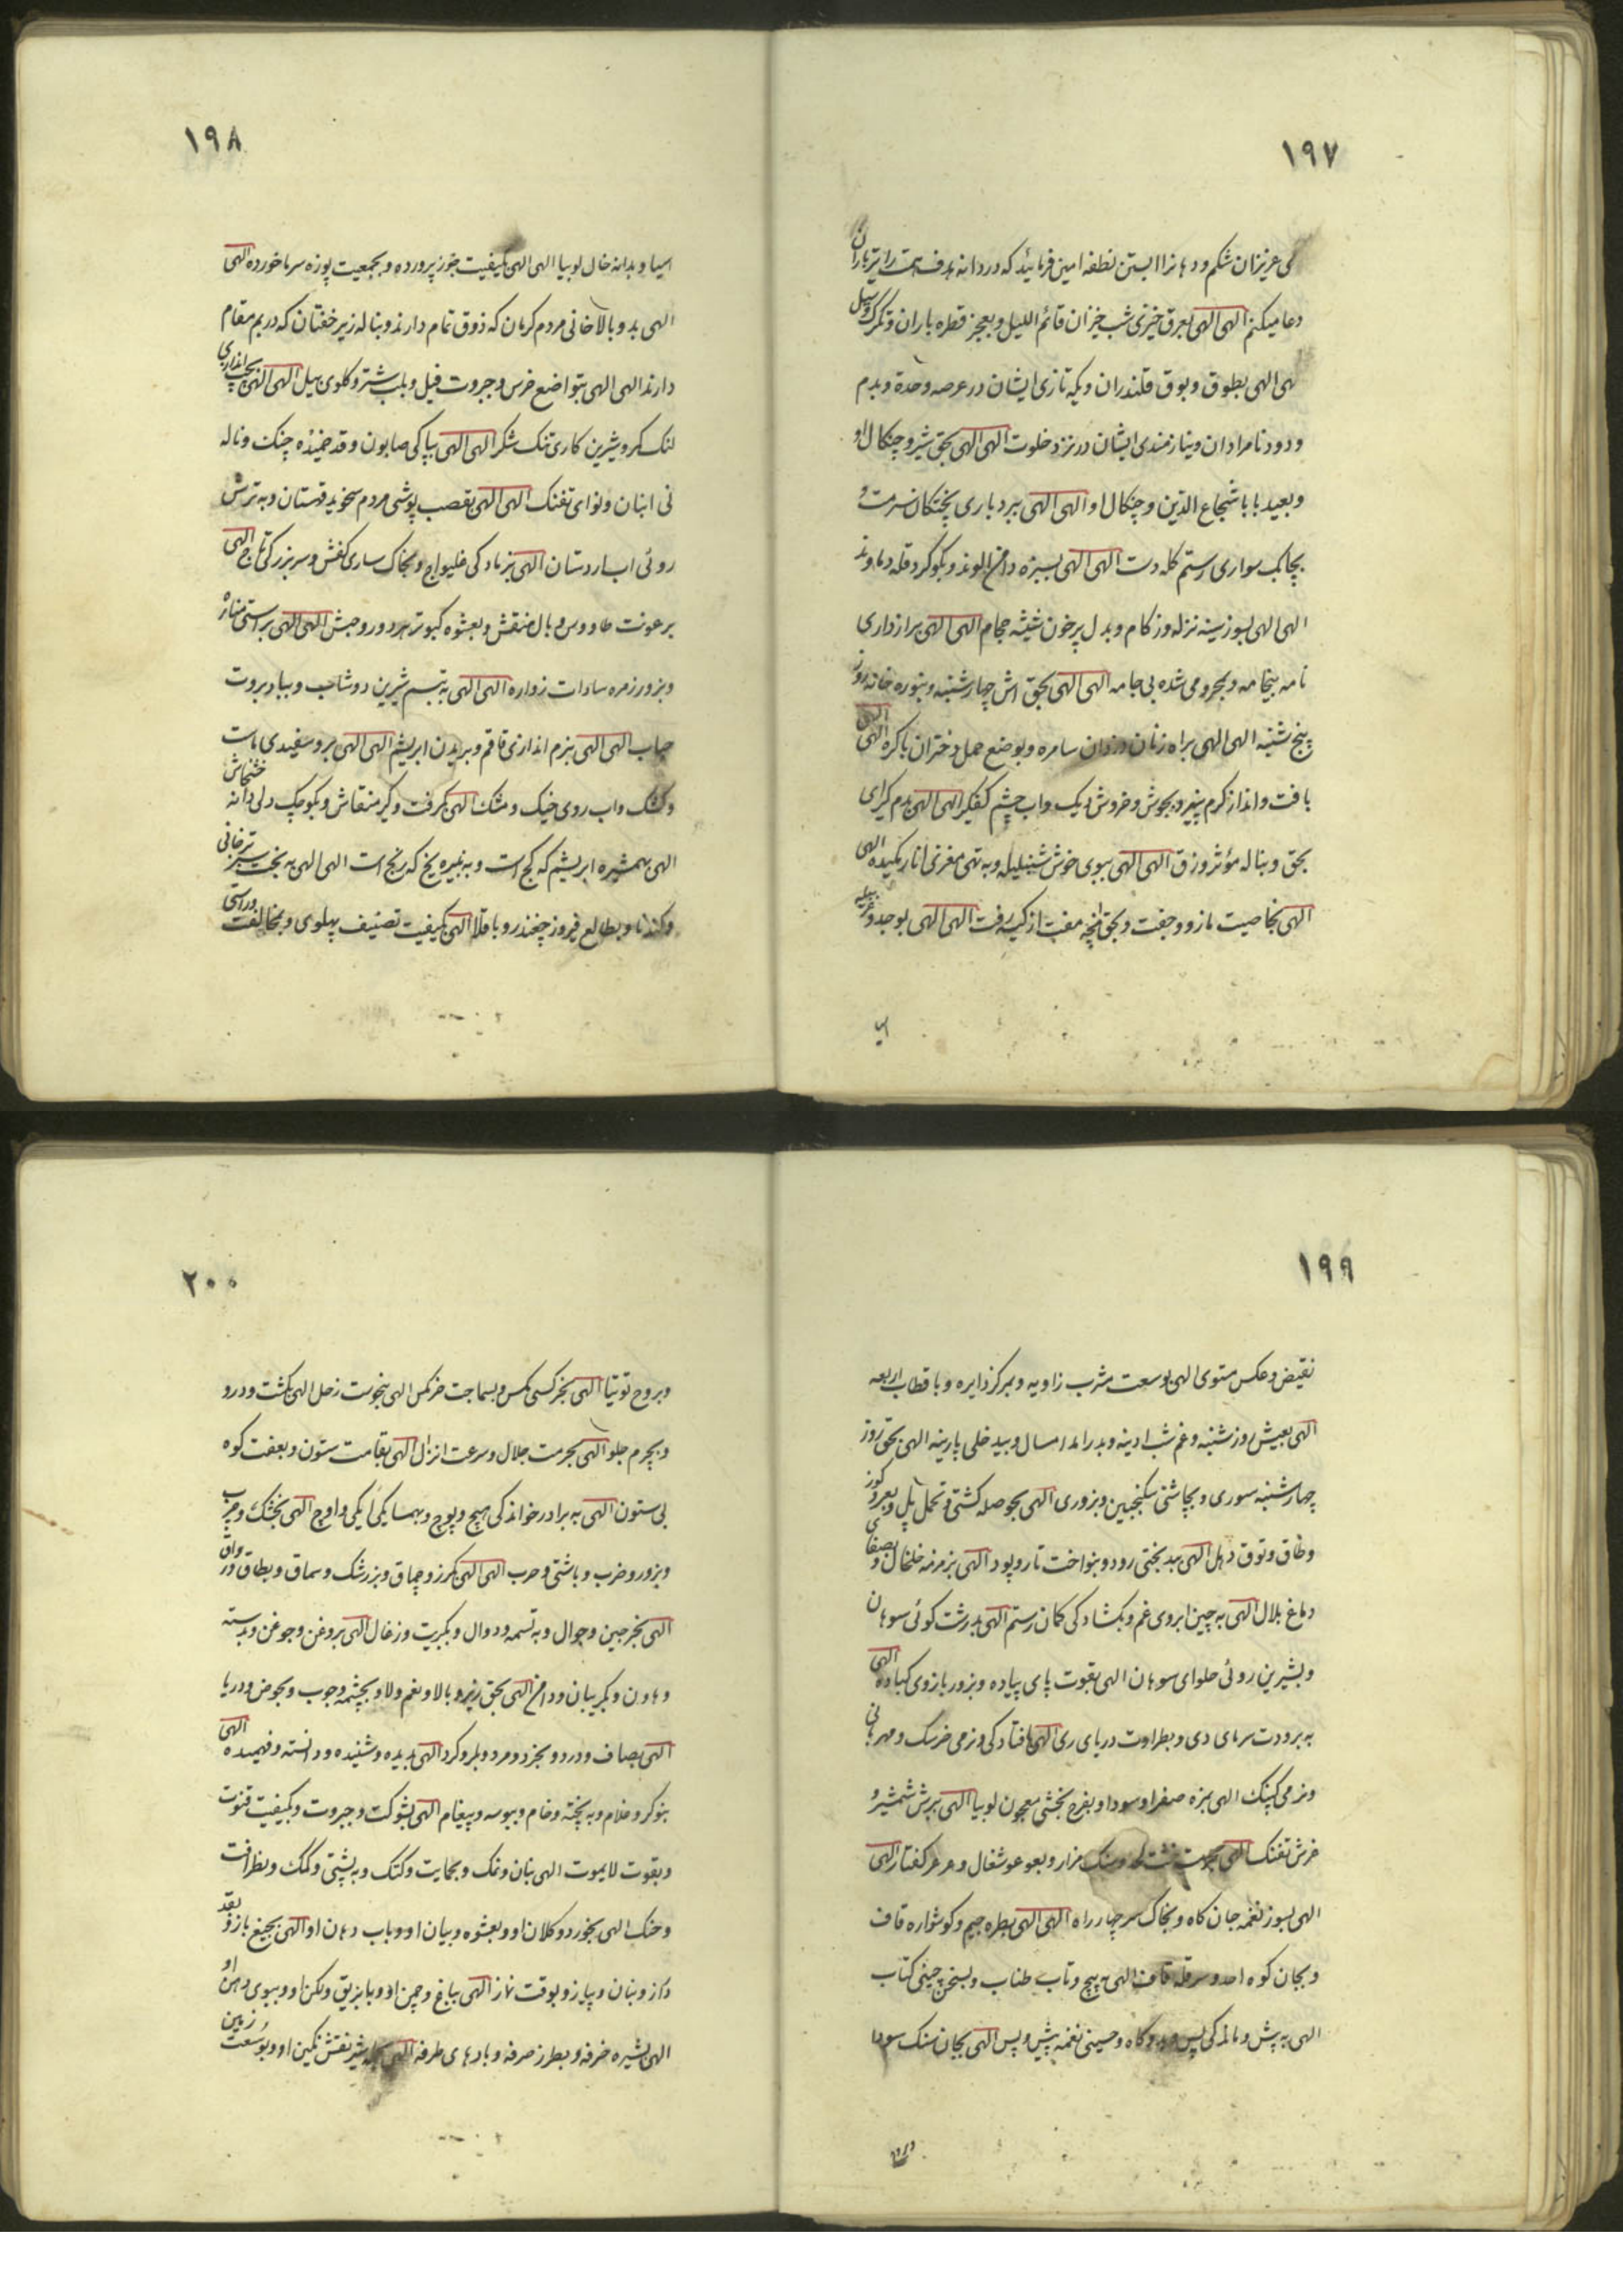 ۱۹۷
ای عزیزان شکم و دهانرا ابستن نطفه امین فرمائید که دردانه هدف همت را تیر باران
دعا میکنم الهی الهی بعرق خیزی شب خیزان قائم اللیل و بعجز قطره باران و تکرک و سیل
الهی الهی بطوق و بوق قلندران و یکه تازی ایشان در عرصه وحدة و بدم
و دود نامرادان و نیازمندی ایشان در نزد خلوت الهی الهی بحق شیر و چنکال او
و بعید بابا شجاع الدین و چنکال او الهی الهی ببردباری پختکان سرمت و
بچابک سواری رستم کله دست الهی الهی بسبزه دامن الوند و بکوکرد قله دماوند
الهی الهی بسوز سینه نزله و زکام و بدل پرخون شیشه حجام الهی الهی برازداری
نامه بیخامه و بمحرومی شده بی جامه الهی الهی بحق اش چهارشنبه و بنوره خانه روز
پنج شنبه الهی الهی براه زنان دزدان سامره و بوضع حمل دختران باکره الهی الهی
بافت و انداز کرم پنیر و بجوش و خروش دیک و اب چشم کفکیر الهی الهی بدم کرای
بحق و بناله مؤثر وزق الهی الهی ببوی خوش شنبلیله و به تهی مغزی انار مکیده الهی
الهی بخاصیت مازو و جفت و بحق انچه مفت از کیسه رفت الهی الهی بوجد و
اسیا
۱۹۸
اسیا و بدانه خال لوبیا الهی الهی بکیفیت جوز پرورده و بجمعیت پوزه سرما خورده الهی
الهی بد و بالاخانی مردم کرمان که ذوق تمام دارند و بناله زیر خفتان که در بم مقام
دارند الهی الهی بتواضع خرس و جبروت فیل و بلب شتر و کلوی بیل الهی الهی بچپ اندازی
لنک کمر و شیرین کاری تنک شکر الهی الهی بپاکی صابون و قد خمیده چنک و ناله
نی انبان و نوای تفنک الهی الهی بقصب پوشی مردم سخوید قهستان و به ترش
روئی اب اردستان الهی بزیادکی غلیواج و بخاک ساری کفش و سربزرکی تاج الهی
برعونت طاووس و بال منقش و بعشوه کبوتر هردو روحبش الهی الهی براستی مناره
و بزور زمره سادات زواره الهی الهی به تبسم شیرین دوشاب و بباد بروت
حباب الهی الهی بنرم اندازی قاقم و بریدن ابریشم الهی الهی برو سفیدی ماست
و کشک و اب روی خیک و مشک الهی بکرفت و کیر منقاش و بکوچک دلی دانه خشخاش
الهی بهمشیره ابریشم که کج است و به نبیره یخ که رنج است الهی الهی به بخت سبز ترخانی
و کندنا و بطالع فیروز چغندر و باقلا الهی بکیفیت تصنیف پهلوی و بمخالفت وراستی
۱۹۹
نقیض و عکس مستوی الهی بوسعت مشرب زاویه و بمرکز دایره و باقطاب اربعه
الهی بعیش روز شنبه و غم شب ادینه و بدرامد امسال و بیدخلی پارینه الهی بحق روز
چهارشنبه سوری و بچاشنی سکنجبین و بزوری الهی بحوصله کشتی و تحمل پل و بعروکوز
و طاق و توق دهل الهی ببدبختی رود و بنواخت تار و پود الهی بزمزمه خلخال و بصفای
دماغ بلال الهی به چین ابروی غم و بکشادکی کمان رستم الهی بدرشت کوئی سوهان
و بشیرین روئی حلوای سوهان الهی بقوت پای پیاده و بزور بازوی کباده الهی
به برودت سرمای دی و بطراوت دریای ری الهی بافتادکی و نرمی خرسک و مهربانی
و نرمی کپنک الهی بمزه صفرا و سودا و بفرح بخشی معجون لوبیا الهی ببرش شمشیر و
غرش تفنک الهی بحرمت خشت لحد و سنک مزار و بعوعو شغال و هرهر کفتار الهی
الهی بسوز نغمه جان کاه و بخاک سر چهار راه الهی الهی بطره جیم و کوشواره قاف
و بجان کوه احد و سر قله قاف الهی به پیچ و تاب طناب و بسخن چینی کتاب
الهی به پیش و ماندکی پس و بدوکاه و حسینی نغمه پیش و پس الهی بجان سنک سودا
۲۰۰
و بروح توتیا الهی بخرکسی مکس و بسماجت خرمکس الهی بنحوست زحل الهی بکشت و درو
و بچرم جلو الهی بحرمت جلال و سرعت انزال الهی بقامت ستون و بعفت کوه
بی ستون الهی به برادر خواندکی هیچ و پوچ و بهمسایکی ایکی و اوچ الهی بخشک و چرب
و بزور و ضرب و باشتی و حرب الهی الهی بکرز و چماق و بزرشک و سماق و بطاق و رواق
الهی بخرجین و جوال و به تسمه و دوال و بکبریت و زغال الهی بروغن و جوغن و بدسته
و هاون و بکریبان و دامن الهی بحق زیر و بالا و نعم ولا و بچشمه و جوب و بحوض و دریا
الهی بصاف و درد و بخرد و مرد و بلر و کرد الهی بدیده و شنیده و دانسته و فهمیده الهی
بنوکر و غلام و به پخته و خام و ببوسه و پیغام الهی بشوکت و جبروت و بکیفیت قنوت
و بقوت لایموت الهی بنان و نمک و بحمایت و کتک و به پشتی و کمک و بظرافت
و خنک الهی بخورد و کلان او و بعشوه و بیان او و باب دهان او الهی بجیغ باز و بقد
دراز و بنان و پیاز و بوقت نماز الهی بباغ و چمن او و بابریق و لکن او و ببوی دهن او
الهی بشیره خرفه و بطرز صرفه و بادهای طرفه الهی بکله شیر نقش نکین او و بوسعت زمین